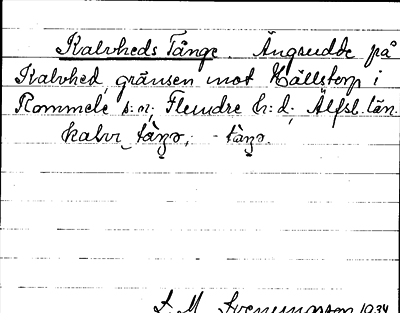 Kalvheds Tånge. Ängsudde på
Kalvhed, gränsen mot Hällstorp i
Rommele s:n, Flundre h:d, Älfsb. län.
kalv_tåŋə, - tåŋə.
L. M. Svenungsson 1934